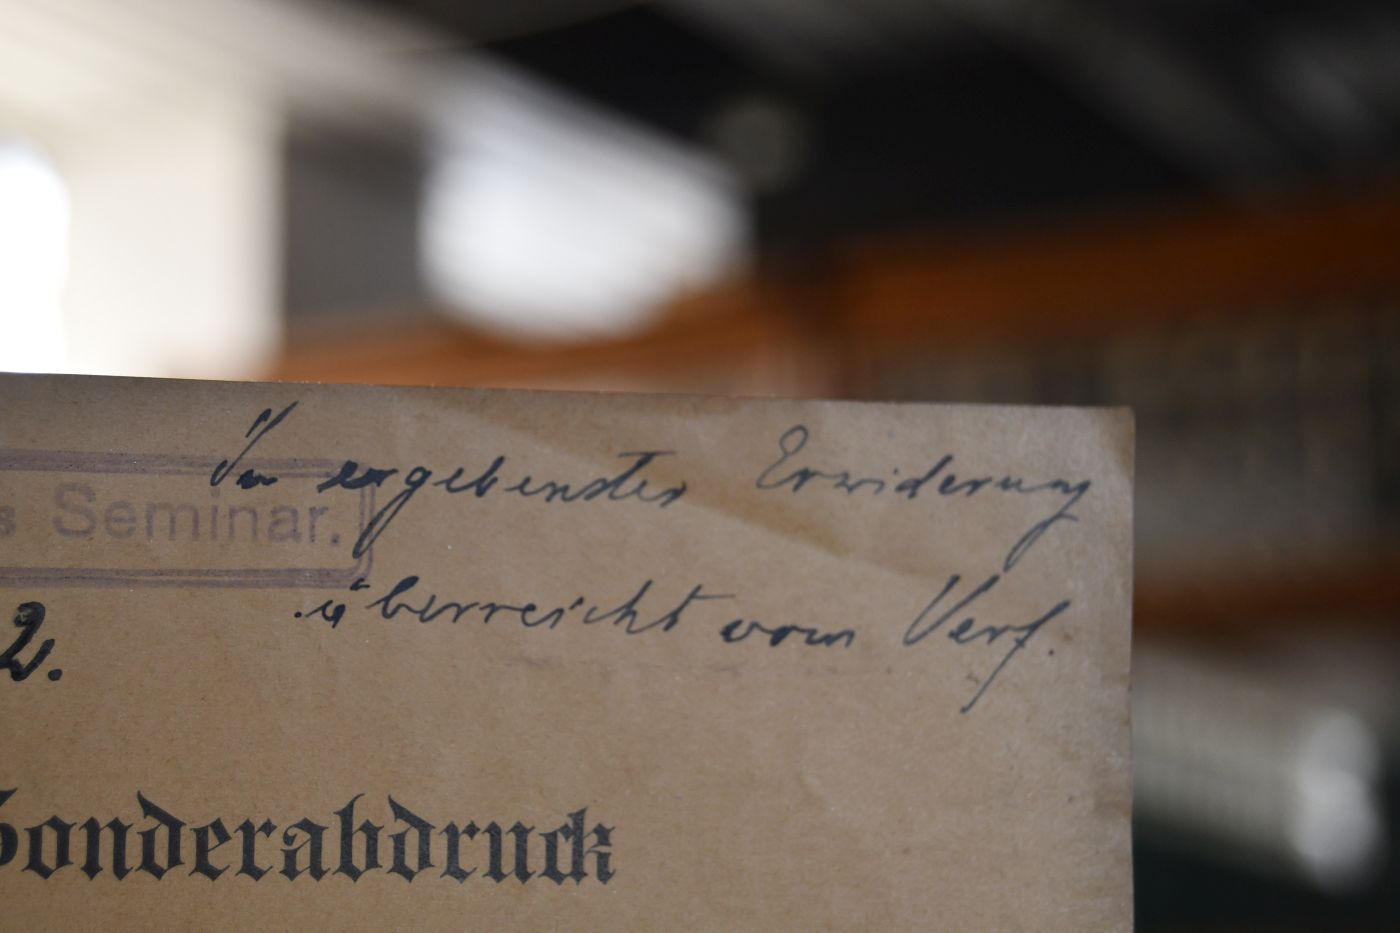 In ergebenster Erwiderung
s Seminar.
überreicht vom Verf.
2.
Sonderabdruck